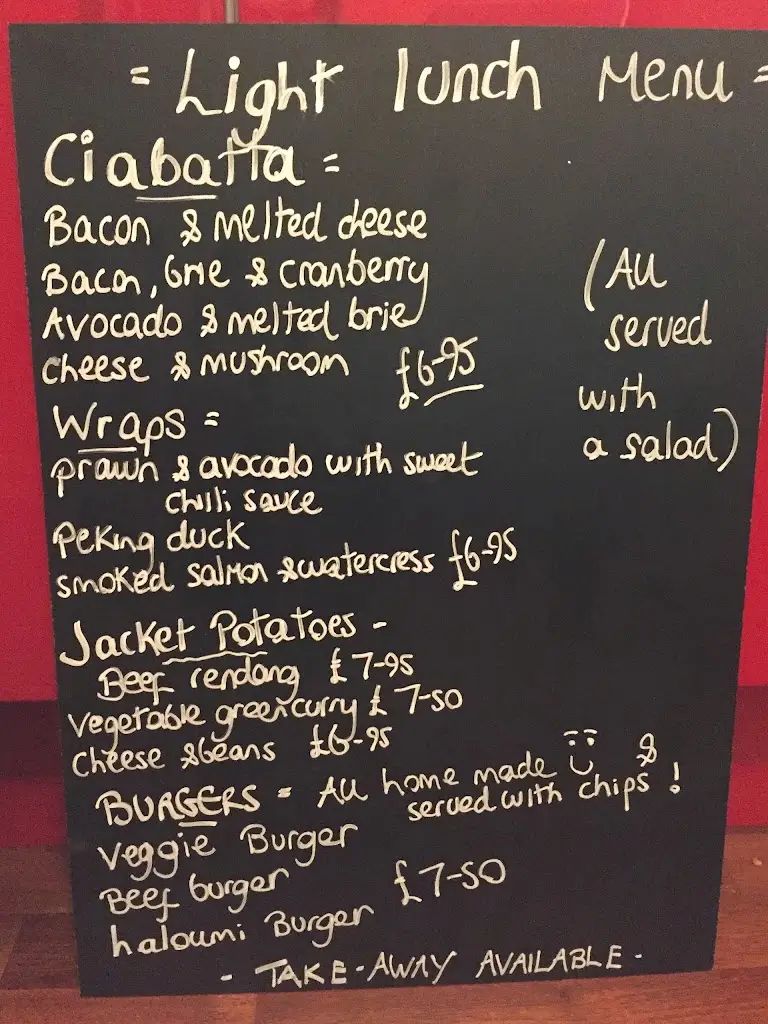 = Light lunch Menu =
Ciabatta =
Bacon & melted cheese
Bacon, brie & cranberry
Avocado & melted brie
cheese & mushroom £6-95
(All
served
with
a salad)
Wraps =
prawn & avocado with sweet
chili sauce
Peking duck
smoked salmon & watercress £6-95
Jacket Potatoes -
Beef rendang £7-95
Vegetable green curry £7-50
Cheese & beans £6-95
BURGERS = All home made &
served with chips !
Veggie Burger
Beef burger £7-50
haloumi Burger
- TAKE-AWAY AVAILABLE -